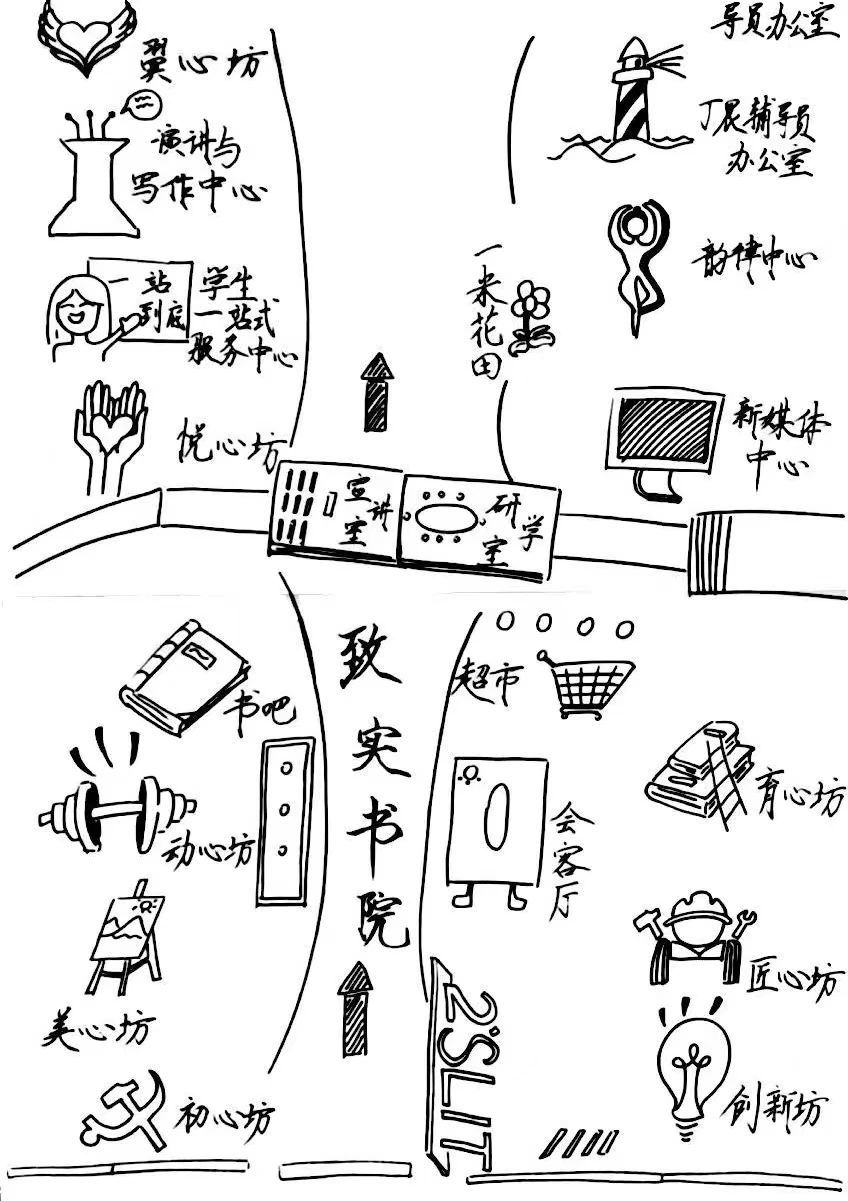 翼心坊
演讲与
写作中心
一站
到底
学生
一站式
服务中心
悦心坊
导员办公室
丁晨辅导员
办公室
一米花田
韵律中心
新媒体
中心
宣讲室
研学室
书吧
动心坊
美心坊
初心坊
致实书院
超市
会客厅
育心坊
匠心坊
创新坊
2°SLIT